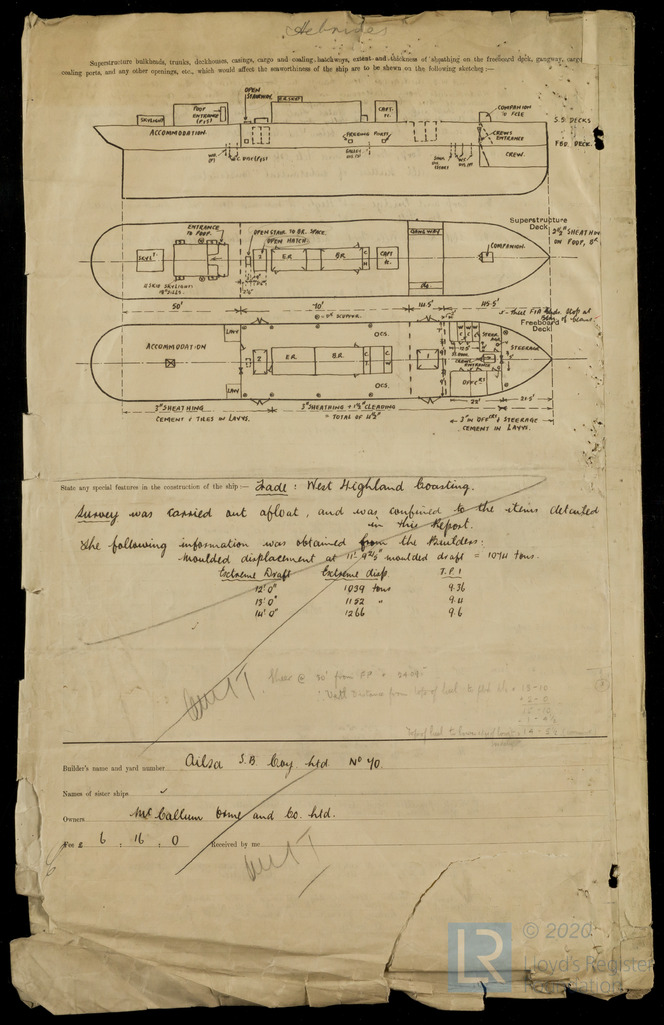 Hebrides
Superstructure bulkheads, trunks, deckhouses, casings, cargo and coaling hatchways, extent and thickness of sheathing on the freeboard deck, gangway, cargo
coaling ports, and any other openings, etc., which would affect the seaworthiness of the ship are to be shewn on the following sketches:—
OPEN STAIRWAY
POOP ENTRANCE (P&S)
SKYLIGHT
CAPT. &c.
COMPANION to FCSLE
S.S. DECKS
ACCOMMODATION
FREEING PORTS
CREWS ENTRANCE
CREW.
FBD. DECK.
ENTRANCE to POOP.
OPEN STAIR TO BR. SPACE.
OPEN HATCH
GANGWAY
Superstructure Deck
2½" SHEATHING ON POOP, BR.
SKYLT
2
E.R
B.R.
CAPT &c.
COMPANION.
50'
70'
14.5'
45.5'
Freeboard Deck
LAVY
OCS.
ACCOMMODATION
2
E.R.
B.R.
1
STEERAGE
LAVY
OCS.
22'
21.5'
3" SHEATHING
CEMENT & TILES IN LAVYS.
3" SHEATHING + 1½" CLEADING
= TOTAL OF 4½"
STEERAGE
CEMENT IN LAVYS.
State any special features in the construction of the ship:— Trade: West Highland Coasting.
Survey was carried out afloat, and was confined to the items detailed
in this Report.
The following information was obtained from the Builders:
Moulded displacement at 11'- 9⅖" moulded draft = 1014 tons.
Extreme Draft Extreme disp. T.P.I
12' 0" 1039 tons 9.36
13' 0" 1152 " 9.41
14' 0" 1266 9.6
Builder's name and yard number Ailsa S.B. Coy. Ltd No 70.
Names of sister ships
Owners McCallum Orme and Co. Ltd.
Fee £ 6 : 16 : 0 Received by me
LR
© 2020
Lloyd's Register
Foundation